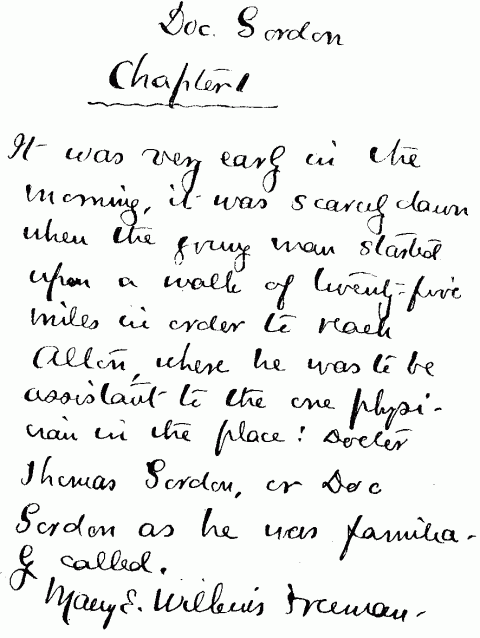 Doc. Gordon
Chapter 1
It was very early in the
morning, it was scarcely dawn
when the young man started
upon a walk of twenty-five
miles in order to reach
Alton, where he was to be
assistant to the one physi-
cian in the place: Doctor
Thomas Gordon, or Doc
Gordon as he was familiar-
ly called.
Mary E. Wilkins Freeman.